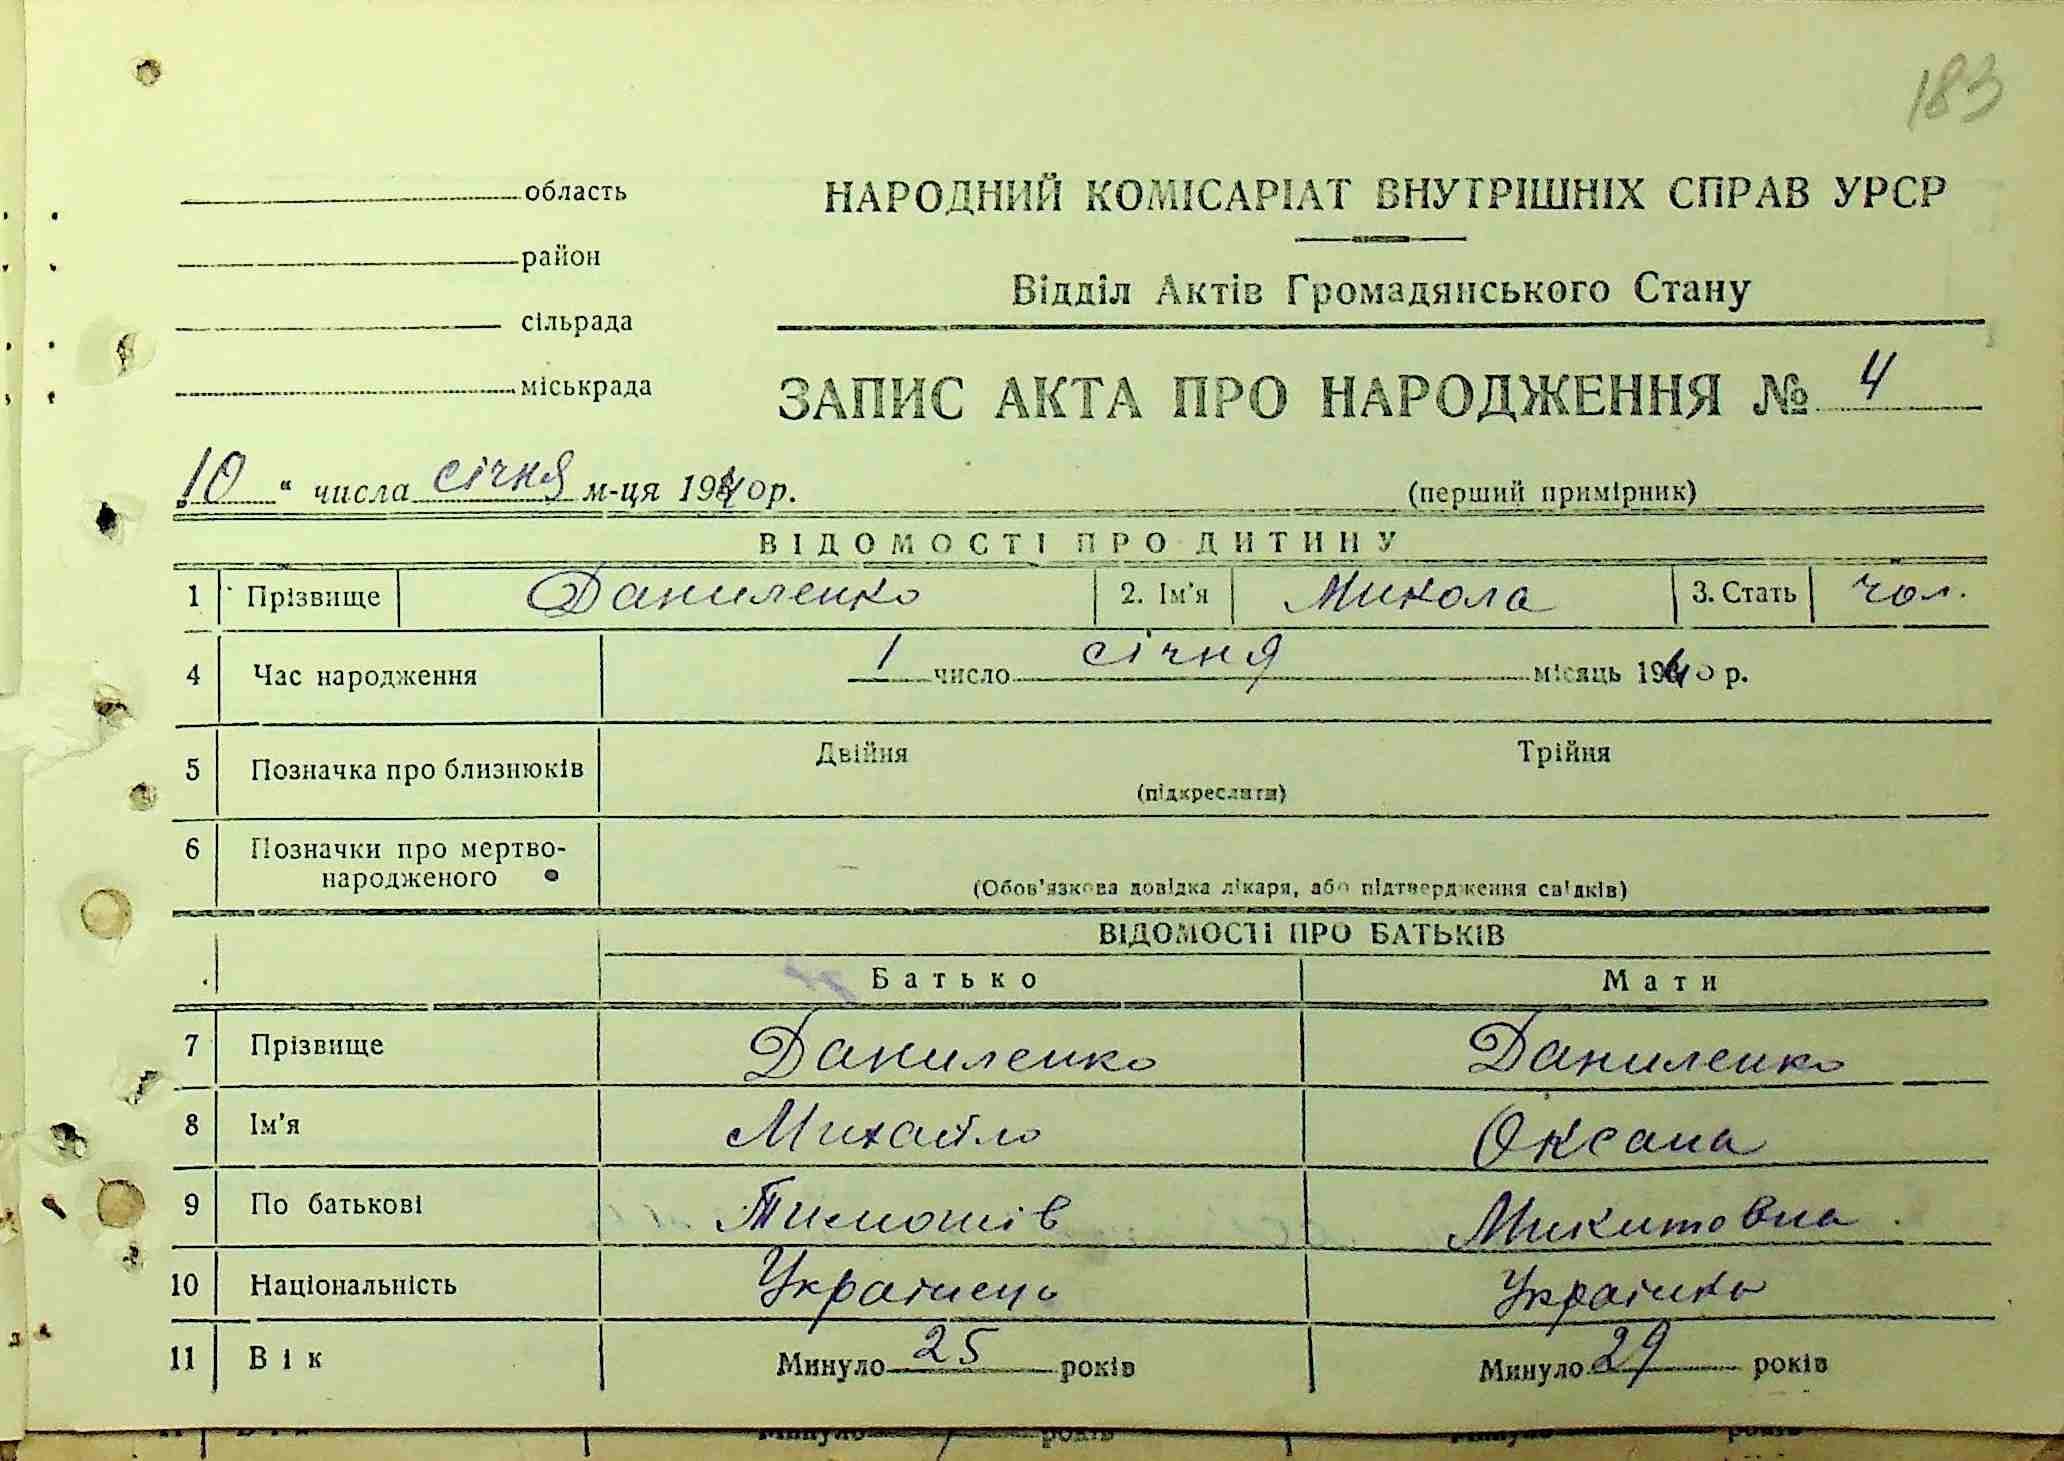 183
область
НАРОДНИЙ КОМІСАРІАТ ВНУТРІШНІХ СПРАВ УРСР
район
Відділ Актів Громадянського Стану
сільрада
міськрада
ЗАПИС АКТА ПРО НАРОДЖЕННЯ № 4
„10“ числа січня м-ця 1940 р.
(перший примірник)
ВІДОМОСТІ ПРО ДИТИНУ
1 Прізвище Даниленко 2. Ім'я Микола 3. Стать чол.
4 Час народження 1 число січня місяць 1940 р.
5 Позначка про близнюків Двійня Трійня
(підкреслити)
6 Позначки про мертво-
народженого
(Обов'язкова довідка лікаря, або підтвердження свідків)
ВІДОМОСТІ ПРО БАТЬКІВ
Батько Мати
7 Прізвище Даниленко Даниленко
8 Ім'я Михайло Оксана
9 По батькові Тимошів Микитовна
10 Національність Українець Українка
11 Вік Минуло 25 років Минуло 29 років